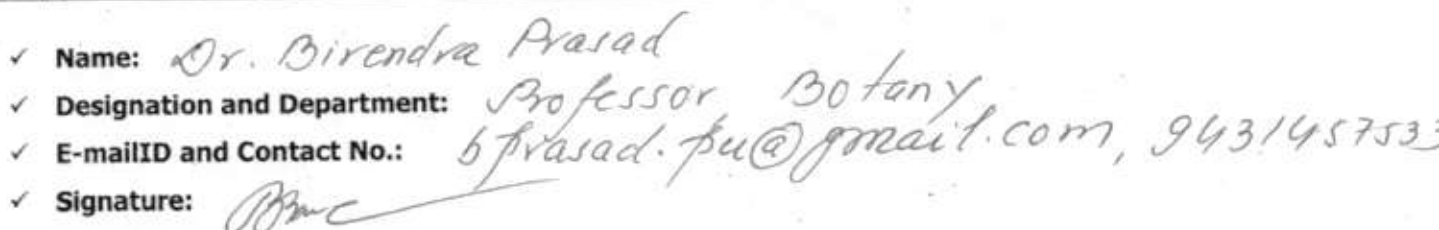 ✓ Name: Dr. Birendra Prasad
✓ Designation and Department: Professor, Botany
✓ E-mailID and Contact No.: bprasad.pu@gmail.com, 9431457533
✓ Signature: